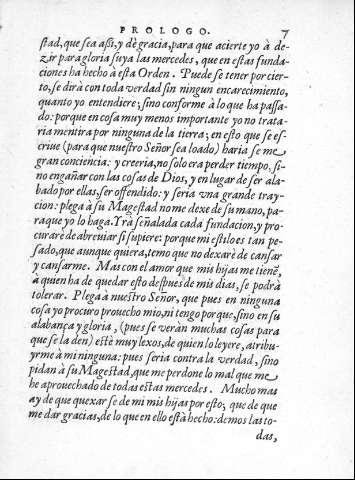 PROLOGO. 7
stad, que sea assi, y dè gracia, para que acierte yo à de-
zir para gloria suya las mercedes, que en estas funda-
ciones ha hecho à esta Orden. Puede se tener por cier-
to, se dirà con toda verdad sin ningun encarecimiento,
quanto yo entendiere; sino conforme à lo que ha passa-
do: porque en cosa muy menos importante yo no trata-
ria mentira por ninguna de la tierra; en esto que se es-
criue (para que nuestro Señor sea loado) haria se me
gran conciencia: y creeria, no solo era perder tiempo, si-
no engañar con las cosas de Dios, y en lugar de ser ala-
bado por ellas, ser offendido: y seria vna grande tray-
cion: plega à su Magestad no me dexe de su mano, pa-
ra que yo lo haga. Yrà señalada cada fundacion, y pro-
curarè de abreuiar si supiere: porque mi estilo es tan pe-
sado, que aunque quiera, temo que no dexarè de cansar
y cansarme. Mas con el amor que mis hijas me tienẽ,
à quien ha de quedar esto despues de mis dias, se podrà
tolerar. Plegà à nuestro Señor, que pues en ninguna
cosa yo procuro prouecho mio, ni tengo porque, sino en su
alabança y gloria, (pues se veràn muchas cosas para
que se la den) estè muy lexos, de quien lo leyere, atribu-
yrme à mi ninguna: pues seria contra la verdad, sino
pidan à su Magestad, que me perdone lo mal que me
he aprouechado de todas estas mercedes. Mucho mas
ay de que quexar se de mi mis hijas por esto, que de que
me dar gracias, de lo que en ello està hecho: demos las to-
das,